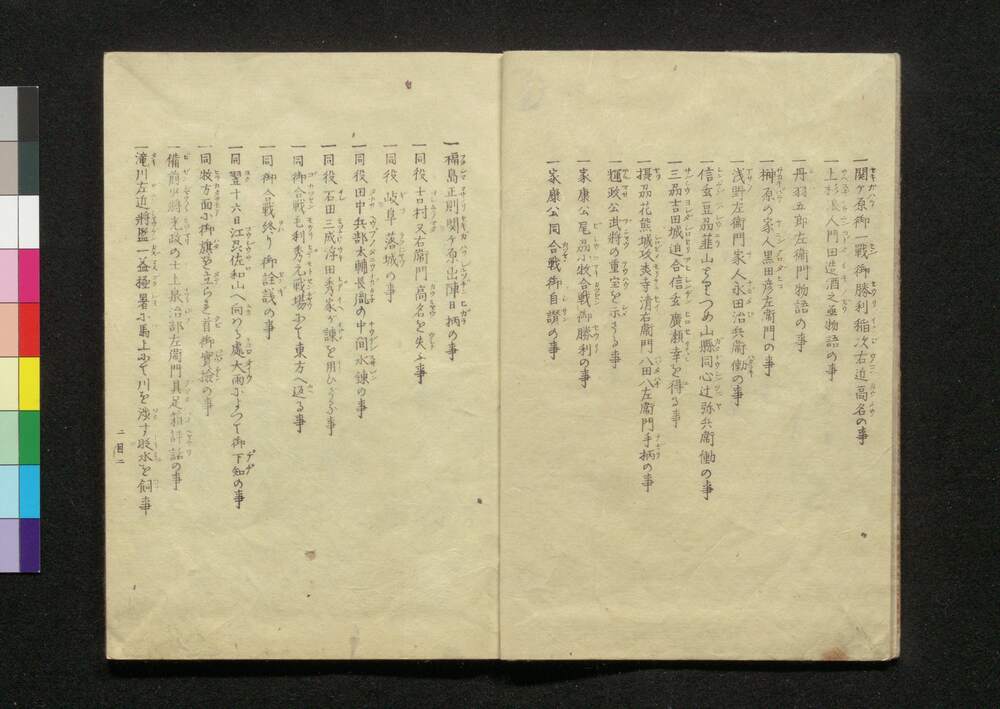 一関ヶ原御一戦御勝利稲次右近高名の事
一上杉浪人門田造酒之丞物語の事
一丹羽五郎左衛門物語の事
一榊原の家人黒田彦左衛門の事
一浅野左衛門家人永田治兵衛働の事
一信玄豆州韮山をせめつめ山縣同心辻弥兵衛働の事
一三州吉田城迫合信玄廣瀬幸を得る事
一摂州花熊城攻炎寺清右衛門八田八左衛門手柄の事
一輝政公武将の重宝を示さるゝ事
一家康公尾州小牧合戦御勝利の事
一家康公同合戦御自讃の事
一福島正則関ヶ原出陣日柄の事
一同役吉村又右衛門高名を失ふ事
一同役岐阜落城の事
一同役田中兵部太輔長胤の中間水錬の事
一同役石田三成浮田秀家が諫を用ひざる事
一同御合戦毛利秀元戦場にて東方へ返る事
一同御合戦終り御詮議の事
一同翌十六日江州佐和山へ向ひ給ふ處大雨によつて御下知の事
一同牧方面に御旗を立らるゝ首御實撿の事
一備前少将光政の士上泉治部左衛門具足箱評話の事
一滝川左近将監一益極暑に馬上にて川を渉す時水を飼事
二目二